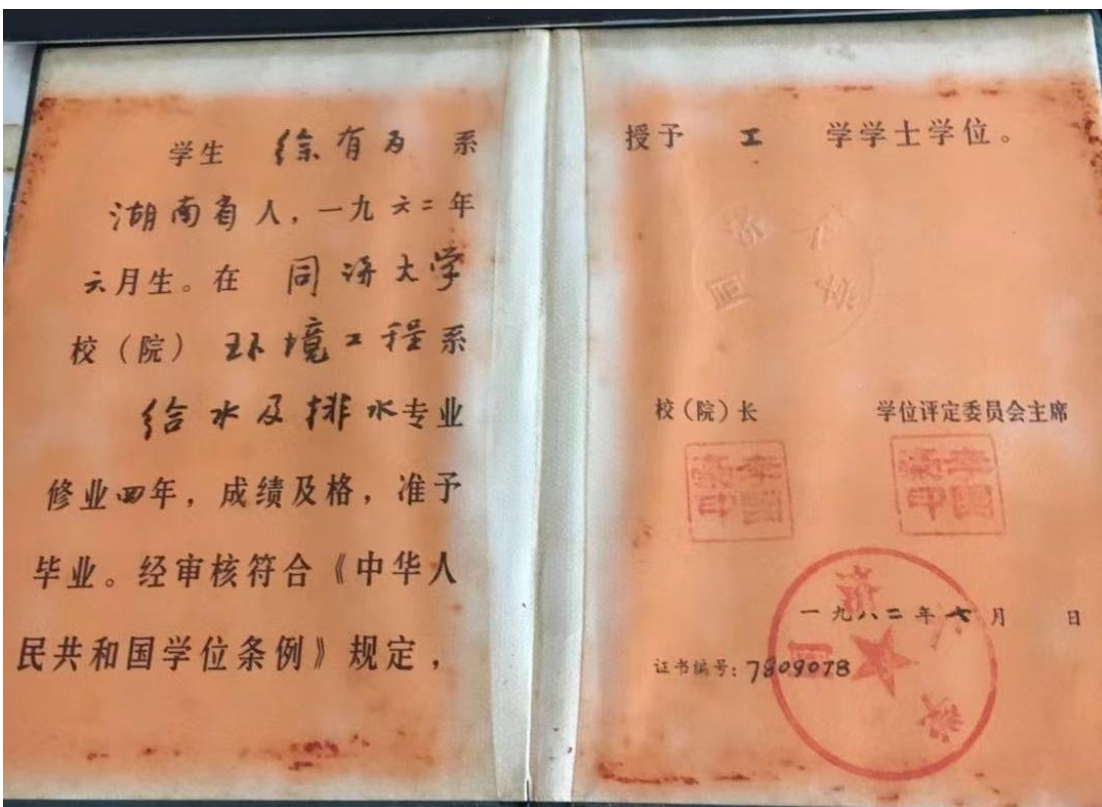 学生 徐有为 系
湖南省人，一九六二年
六月生。在 同济大学
校（院） 环境工程系
给水及排水专业
修业四年，成绩及格，准予
毕业。经审核符合《中华人
民共和国学位条例》规定，
授予 工 学学士学位。
校（院）长
学位评定委员会主席
一九八二年七月 日
证书编号：7809078